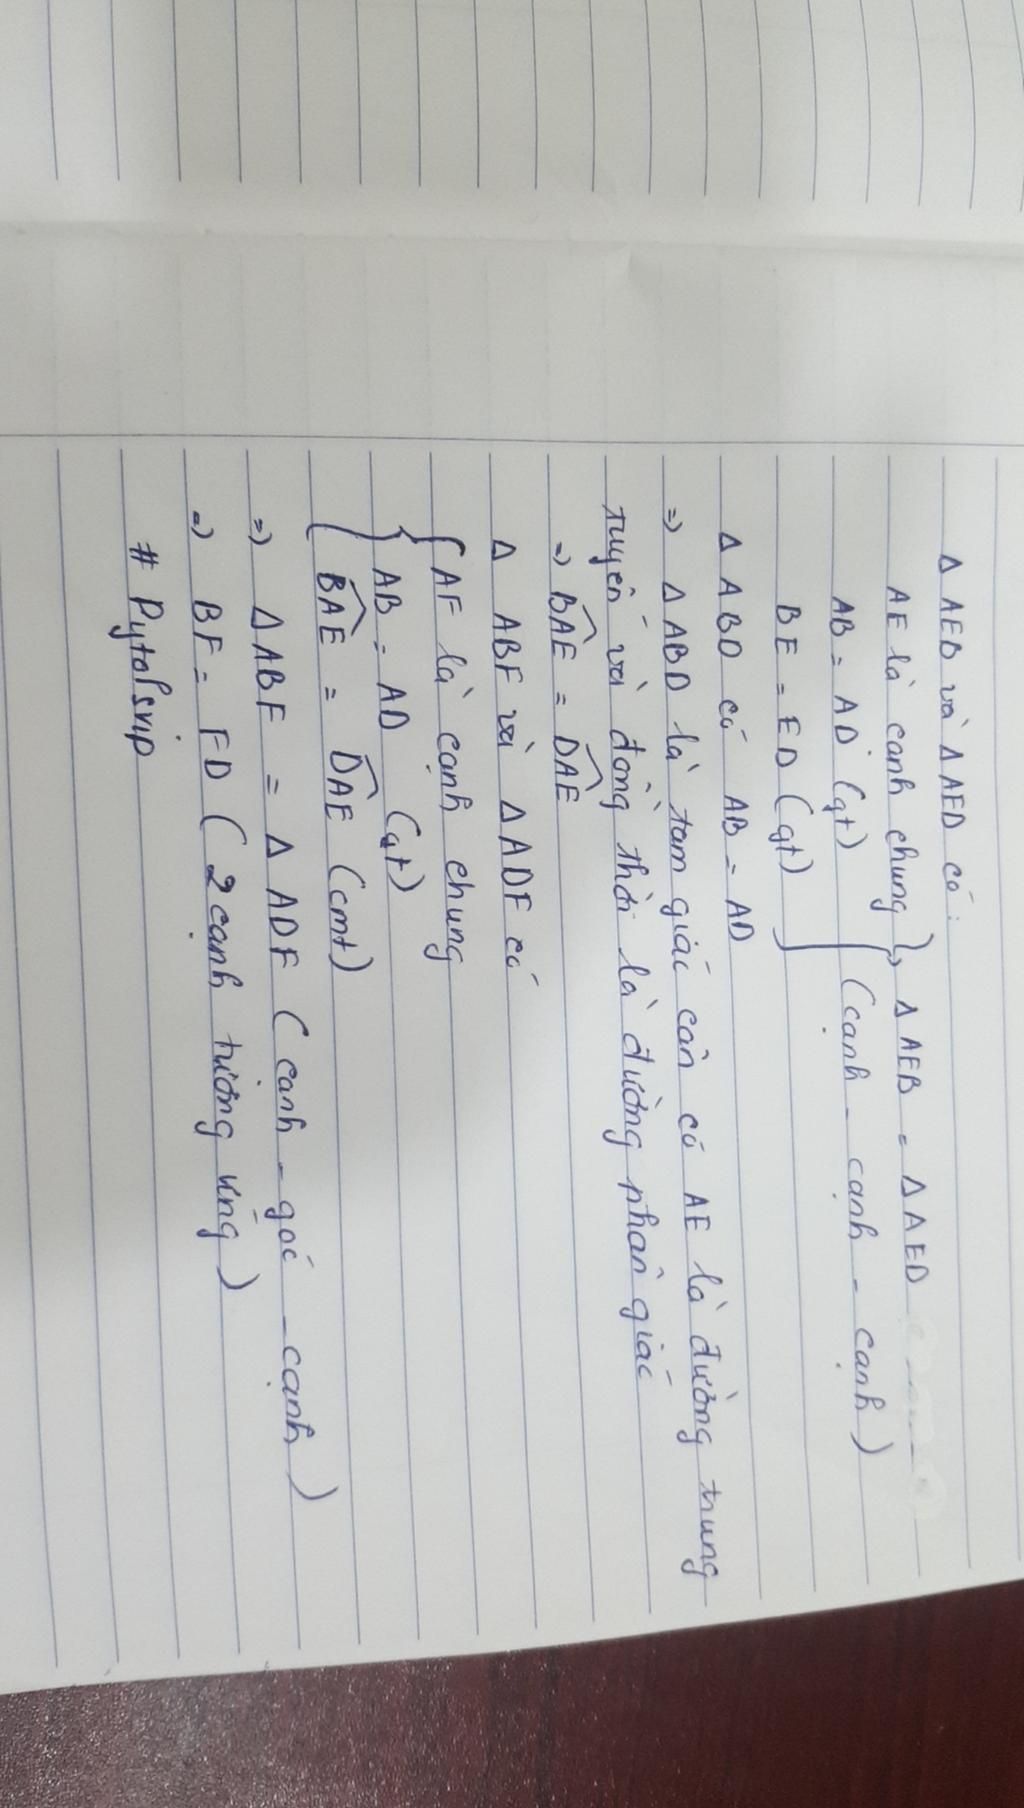 Δ AEB và Δ AED có:
AE là cạnh chung } => Δ AEB = Δ AED
AB = AD (gt) (cạnh - cạnh - cạnh)
BE = ED (gt)
Δ ABD có AB = AD
=> Δ ABD là tam giác cân có AE là đường trung
tuyến và đồng thời là đường phân giác
=> BAE = DAE
Δ ABF và Δ ADF có
{ AF là cạnh chung
AB = AD (gt)
BAE = DAE (cmt)
=> Δ ABF = Δ ADF (cạnh - góc - cạnh)
=> BF = FD (2 cạnh tương ứng)
# Pytalsvip